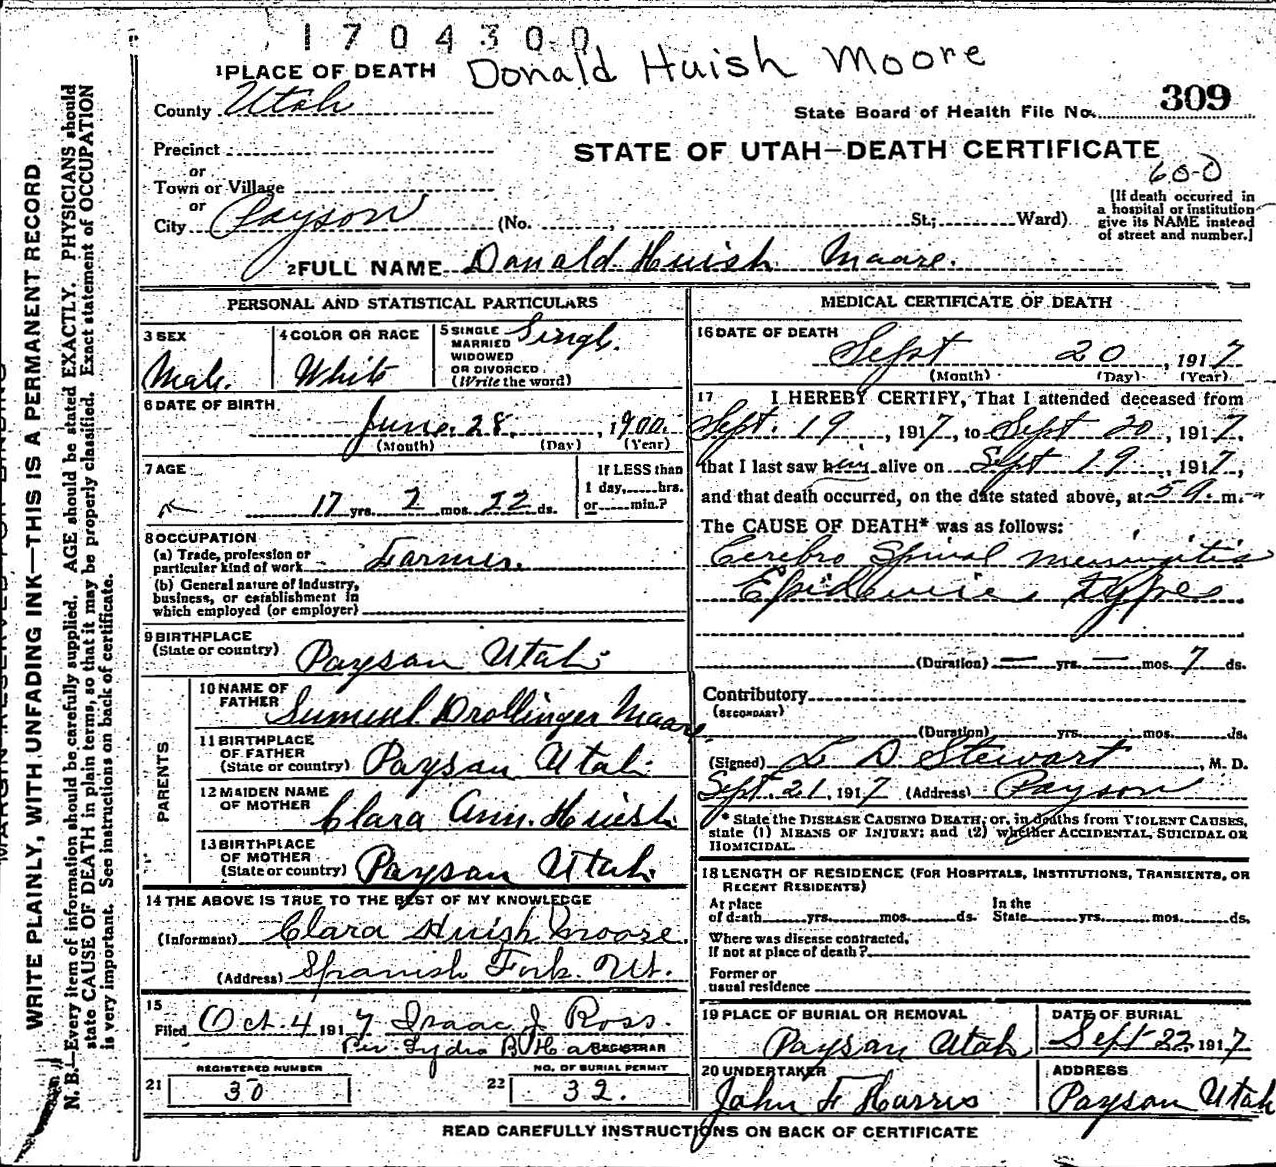 1704300
Donald Huish Moore
1 PLACE OF DEATH
County Utah
State Board of Health File No. 309
Precinct
or
Town or Village
or
City Payson (No. , St; Ward)
STATE OF UTAH—DEATH CERTIFICATE
60-0
[If death occurred in
a hospital or institution
give its NAME instead
of street and number.]
2 FULL NAME Donald Huish Moore.
PERSONAL AND STATISTICAL PARTICULARS
3 SEX
Male.
4 COLOR OR RACE
White
5 SINGLE
MARRIED
WIDOWED
OR DIVORCED.
(Write the word)
Single.
6 DATE OF BIRTH
June 28, 1900.
(Month) (Day) (Year)
7 AGE
17 yrs. 2 mos. 22 ds.
If LESS than
1 day, hrs.
or min.?
8 OCCUPATION
(a) Trade, profession or
particular kind of work Farmer.
(b) General nature of industry,
business, or establishment in
which employed (or employer)
9 BIRTHPLACE
(State or country) Payson Utah
PARENTS
10 NAME OF
FATHER Samuel Drollinger Moore
11 BIRTHPLACE
OF FATHER
(State or country) Payson Utah
12 MAIDEN NAME
OF MOTHER Clara Ann. Huish
13 BIRTHPLACE
OF MOTHER
(State or country) Payson Utah.
14 THE ABOVE IS TRUE TO THE BEST OF MY KNOWLEDGE
(Informant) Clara Huish Moore.
(Address) Spanish Fork. Ut.
15
Filed Oct 4 1917 Isaac J Ross
Per Lydia B
REGISTRAR
REGISTERED NUMBER
21 30
NO. OF BURIAL PERMIT
22 32.
MEDICAL CERTIFICATE OF DEATH
16 DATE OF DEATH
Sept 20, 1917
(Month) (Day) (Year)
17 I HEREBY CERTIFY, That I attended deceased from
Sept. 19, 1917, to Sept 20, 1917.
that I last saw him alive on Sept 19, 1917,
and that death occurred, on the date stated above, at 5 a. m.
The CAUSE OF DEATH* was as follows:
Cerebro Spinal meningitis
Epidemic type
(Duration) — yrs. — mos. 7 ds.
Contributory
(SECONDARY)
(Duration) yrs. mos. ds.
(Signed) L D Stewart, M. D.
Sept. 21, 1917 (Address) Payson
* State the DISEASE CAUSING DEATH; or, in deaths from VIOLENT CAUSES,
state (1) MEANS OF INJURY; and (2) whether ACCIDENTAL, SUICIDAL OR
HOMICIDAL.
18 LENGTH OF RESIDENCE (FOR HOSPITALS, INSTITUTIONS, TRANSIENTS, OR
RECENT RESIDENTS)
At place
of death yrs. mos. ds.
In the
State yrs. mos. ds.
Where was disease contracted,
If not at place of death?
Former or
usual residence
19 PLACE OF BURIAL OR REMOVAL
Payson Utah
DATE OF BURIAL
Sept 22, 1917
20 UNDERTAKER
John F Harris
ADDRESS
Payson Utah
READ CAREFULLY INSTRUCTIONS ON BACK OF CERTIFICATE
MARGIN RESERVED FOR BINDING
WRITE PLAINLY, WITH UNFADING INK—THIS IS A PERMANENT RECORD
N. B.—Every item of information should be carefully supplied. AGE should be stated EXACTLY. PHYSICIANS should
state CAUSE OF DEATH in plain terms, so that it may be properly classified. Exact statement of OCCUPATION
is very important. See instructions on back of certificate.